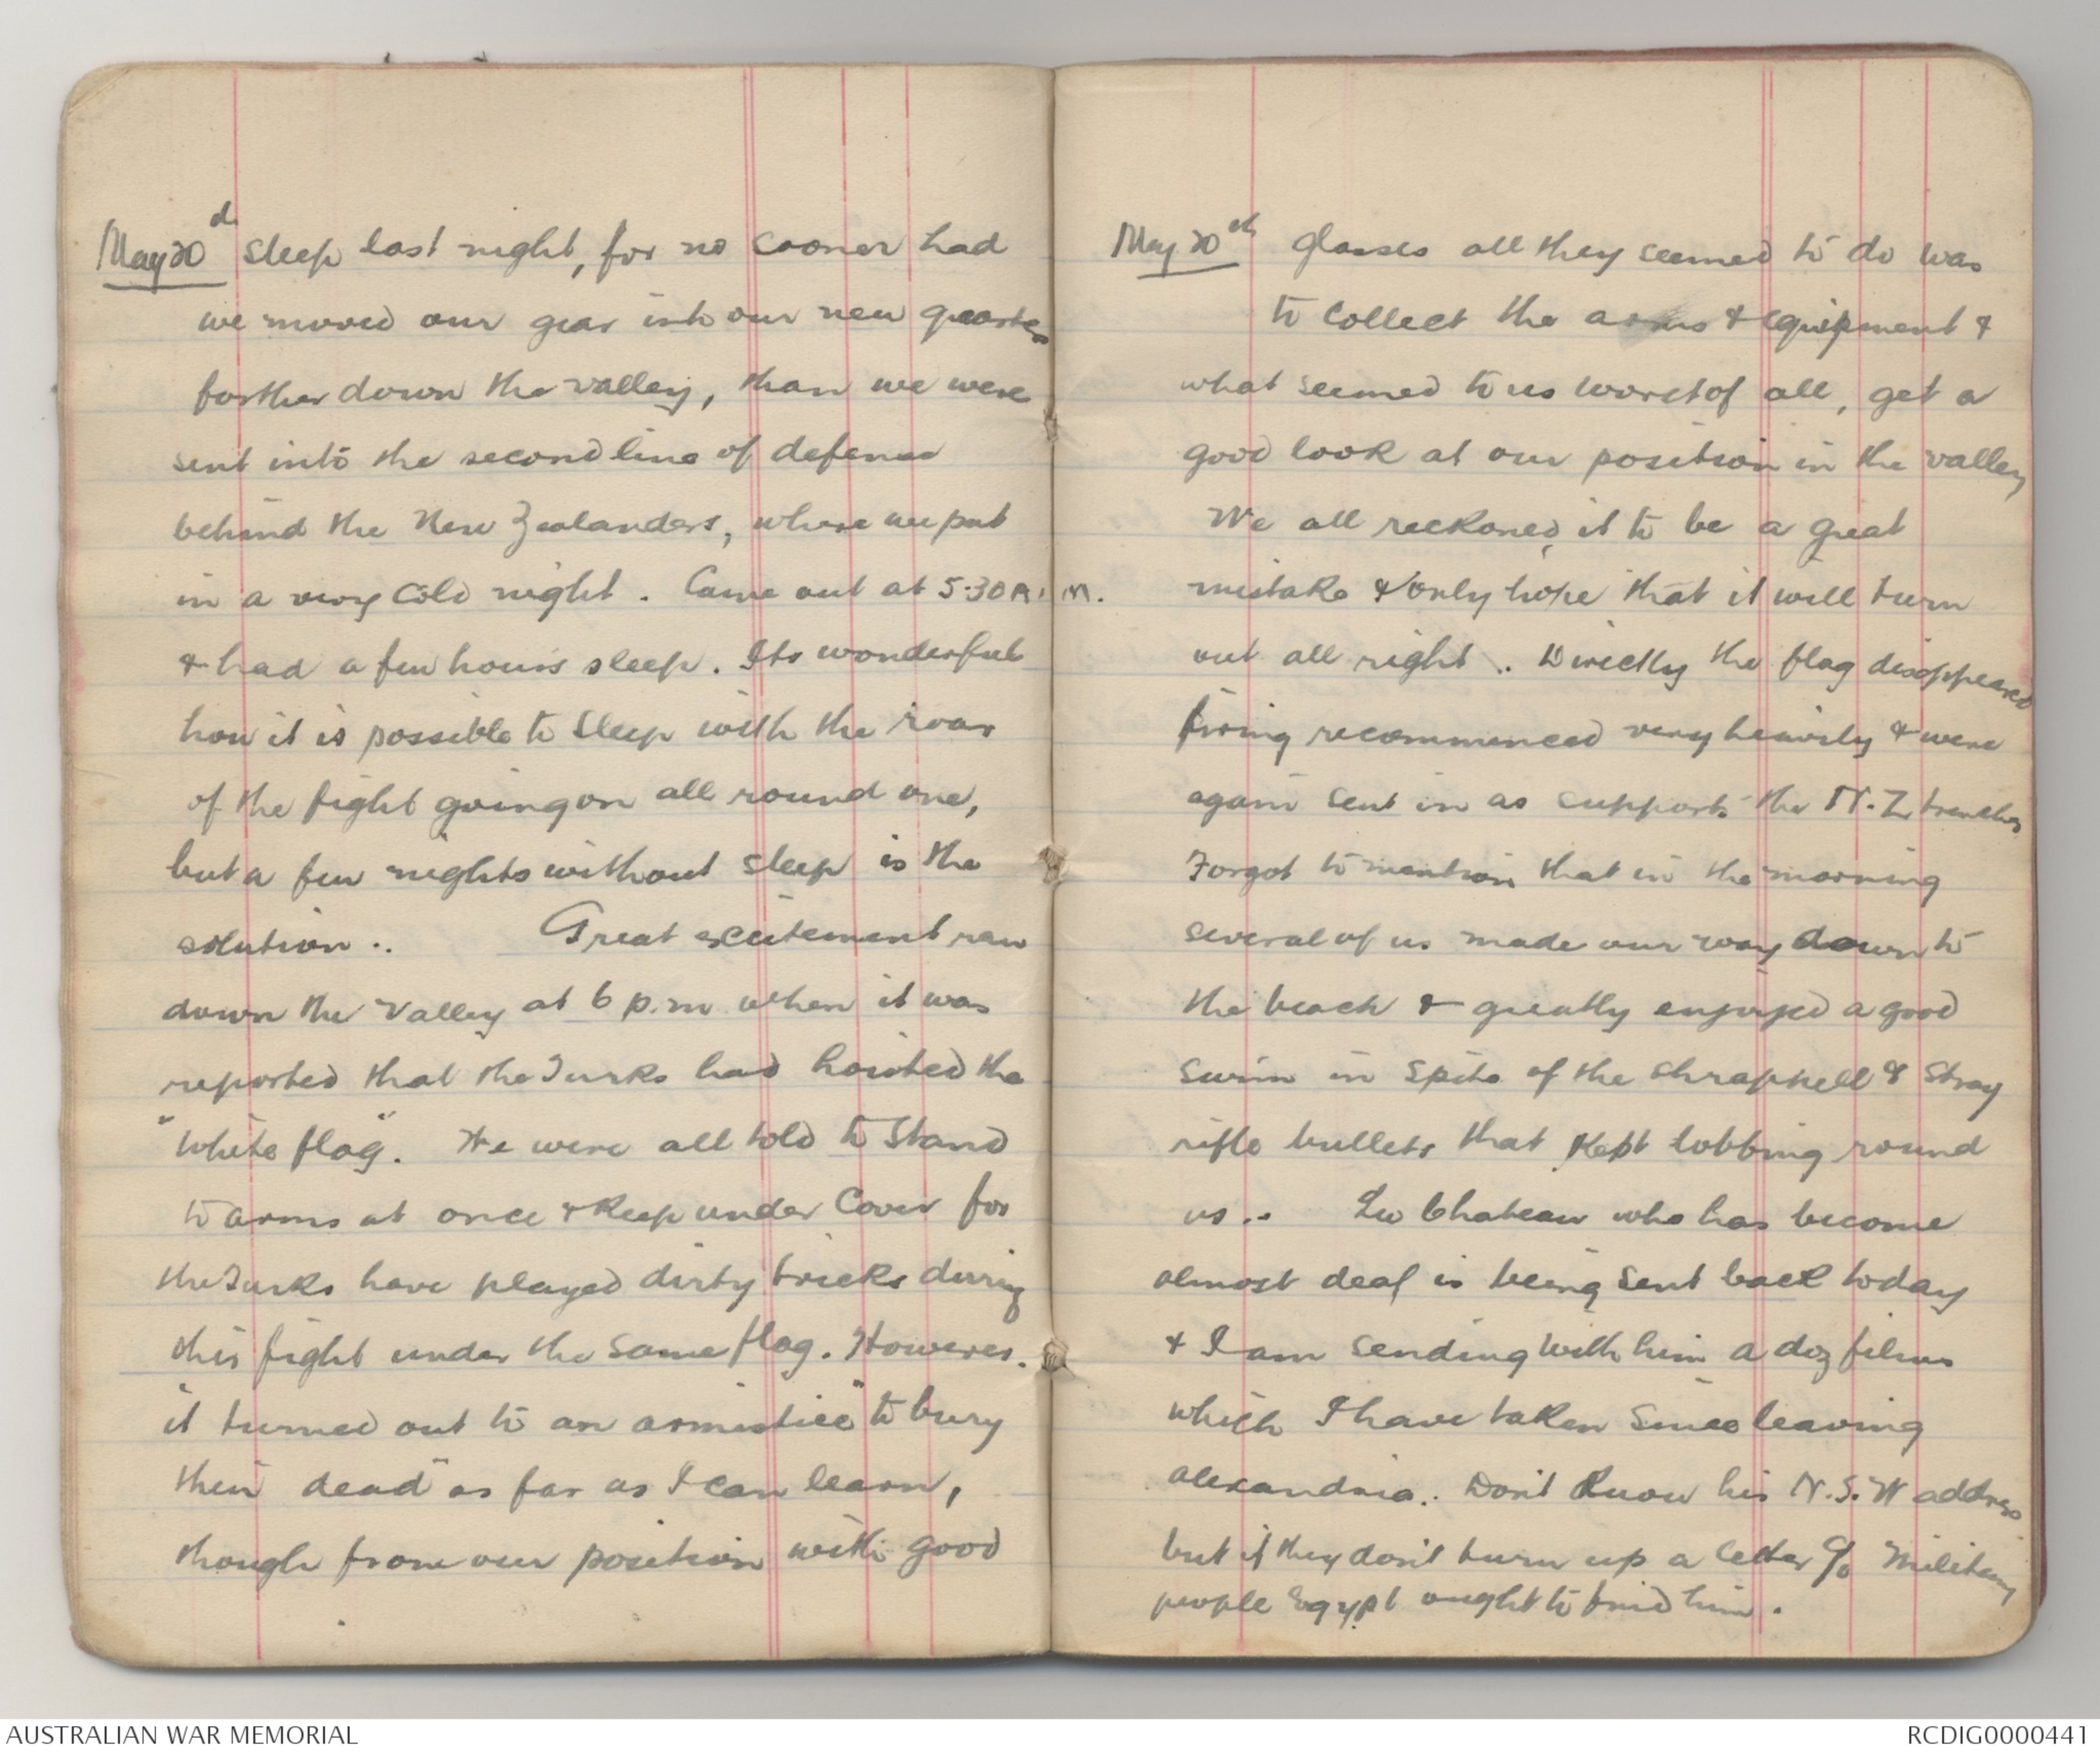 May 20th sleep last night, for no sooner had
we moved our gear into our new quarters
further down the valley, than we were
sent into the second line of defence
behind the New Zealanders, where we put
in a very cold night. Came out at 5.30 A.M.
& had a few hours sleep. Its wonderful
how it is possible to sleep with the roar
of the fight going on all round one,
but a few nights without sleep is the
solution.. Great excitement ran
down the Valley at 6 p.m when it was
reported that the Turks had hoisted the
"White flag". We were all told to stand
to arms at once & keep under cover for
the Turks have played dirty tricks during
this fight under the same flag. However.
it turned out to an armistice "to bury
their dead" as far as I can learn,
though from our position with good
May 20th glasses all they seemed to do was
to collect the arms & equipment &
what seemed to us worst of all, get a
good look at our position in the valley
We all reckoned it to be a great
mistake & only hope that it will turn
out all right.. Directly the flag disappeared
firing recommenced very heavily & were
again sent in as supports the N.Z trenches
Forgot to mention that in the morning
several of us made our way down to
the beach & greatly enjoyed a good
swim in spite of the shrapnell & stray
rifle bullets that kept lobbing round
us.. Lu Chateau who has become
almost deaf is being sent back today
& I am sending with him a doz films
which I have taken since leaving
Alexandria.. Don't know his N.S.W address
but if they don't turn up a letter c/o Military
people Egypt ought to find him.
AUSTRALIAN WAR MEMORIAL
RCDIG0000441